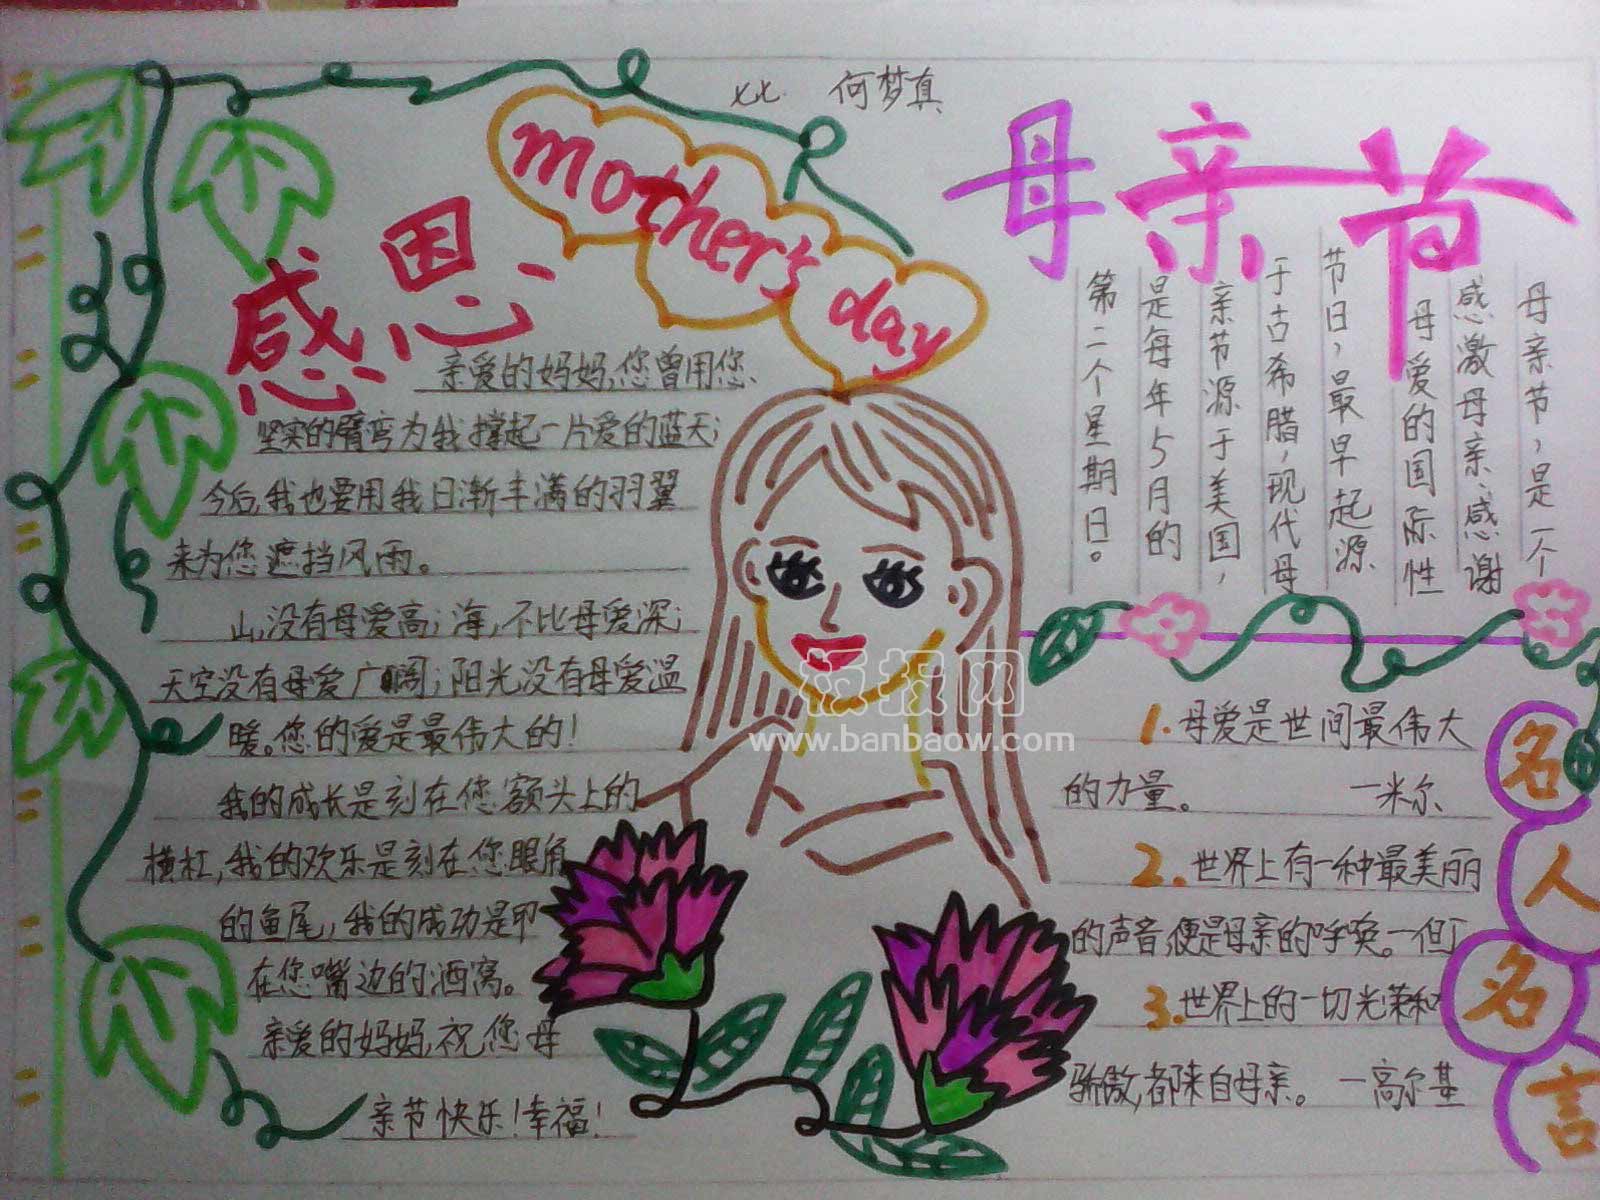 何梦真
mother's day
感恩
母亲节
亲爱的妈妈,您曾用您
坚实的臂弯为我撑起一片爱的蓝天;
今后,我也要用我日渐丰满的羽翼
来为您遮挡风雨。
山,没有母爱高;海,不比母爱深;
天空没有母爱广阔;阳光没有母爱温
暖。您的爱是最伟大的!
我的成长是刻在您额头上的
横杠,我的欢乐是刻在您眼角
的鱼尾,我的成功是印
在您嘴边的酒窝。
亲爱的妈妈,祝您母
亲节快乐!幸福!
母亲节,是一个
感激母亲、感谢
母爱的国际性
节日,最早起源
于古希腊,现代母
亲节源于美国,
是每年5月的
第二个星期日。
名人名言
1.母爱是世间最伟大
的力量。 —米尔
2.世界上有一种最美丽
的声音,便是母亲的呼唤。—但丁
3.世界上的一切光荣和
骄傲,都来自母亲。 —高尔基
板报网
www.banbaow.com